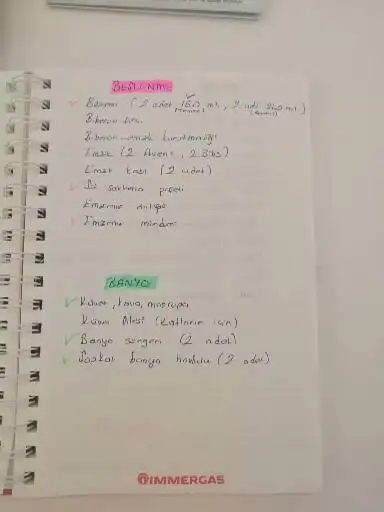 BESLENME
Biberon (2 adet 150 ml, 2 adet 240 ml)
Biberon
Biberon emzik
Emzik (2 Avent, 2 Bibs)
Emzik kabı (2 adet)
Süt saklama poşeti
Emzirme önlüğü
Emzirme minderi
BANYO
Küvet, kova, maşrapa
Küvet filesi (Katlanır için)
Banyo süngeri (2 adet)
Şapkalı banyo havlusu (2 adet)
IMMERGAS